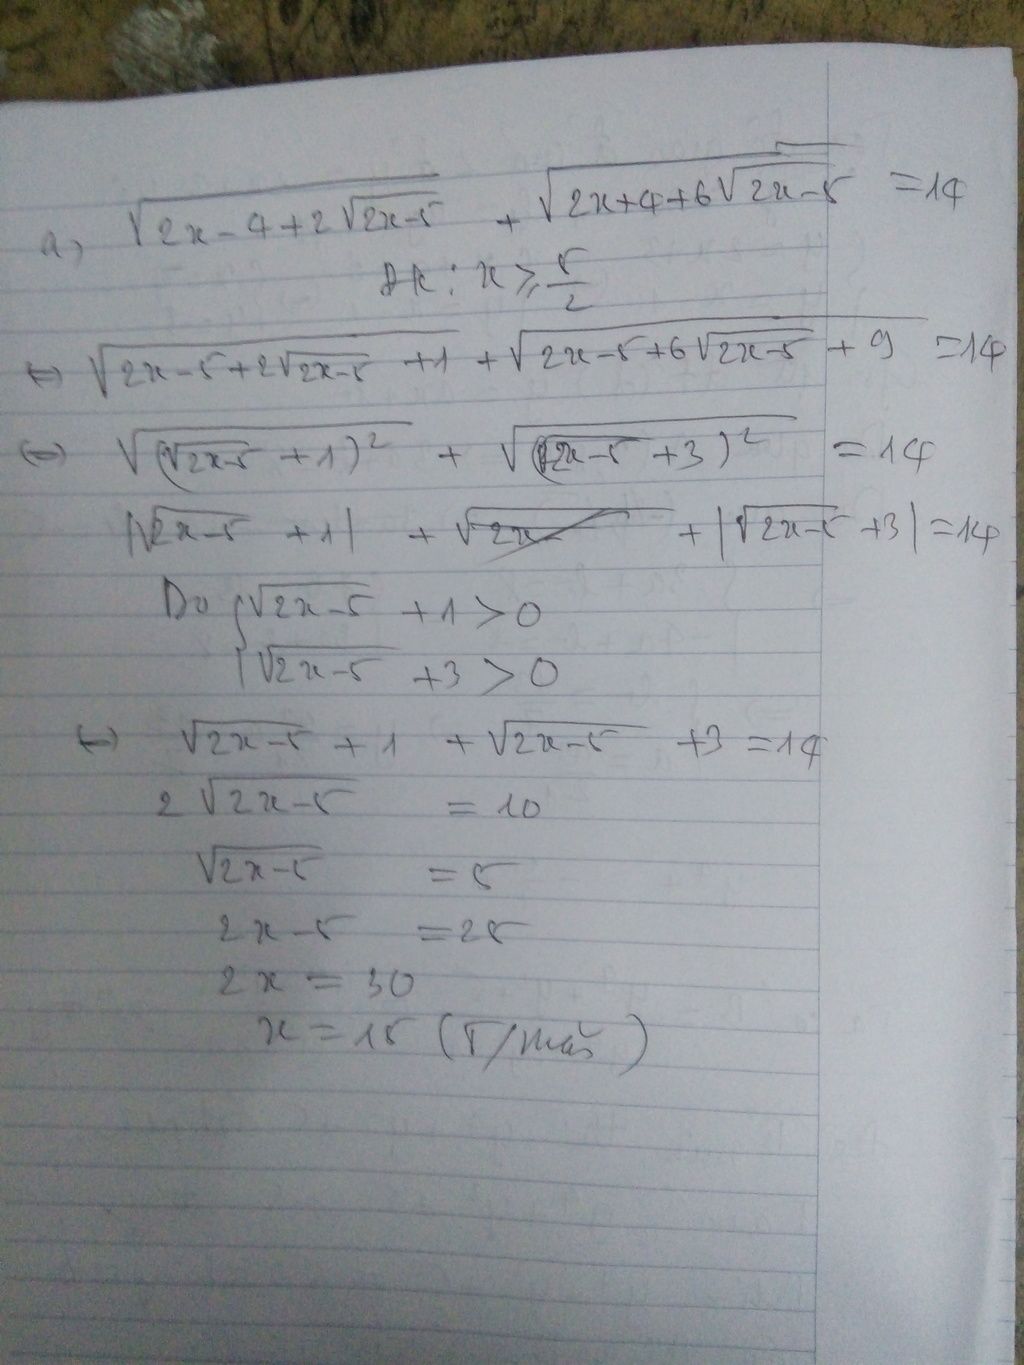 a, √(2x-4+2√(2x-5)) + √(2x+4+6√(2x-5)) = 14
ĐK: x ≥ 5/2
⇔ √(2x-5+2√(2x-5)+1) + √(2x-5+6√(2x-5)+9) = 14
⇔ √((√(2x-5)+1)²) + √((√(2x-5)+3)²) = 14
|√(2x-5)+1| + |√(2x-5)+3| = 14
Do { √(2x-5) + 1 > 0
√(2x-5) + 3 > 0
⇔ √(2x-5) + 1 + √(2x-5) + 3 = 14
2√(2x-5) = 10
√(2x-5) = 5
2x-5 = 25
2x = 30
x = 15 (T/mãn)